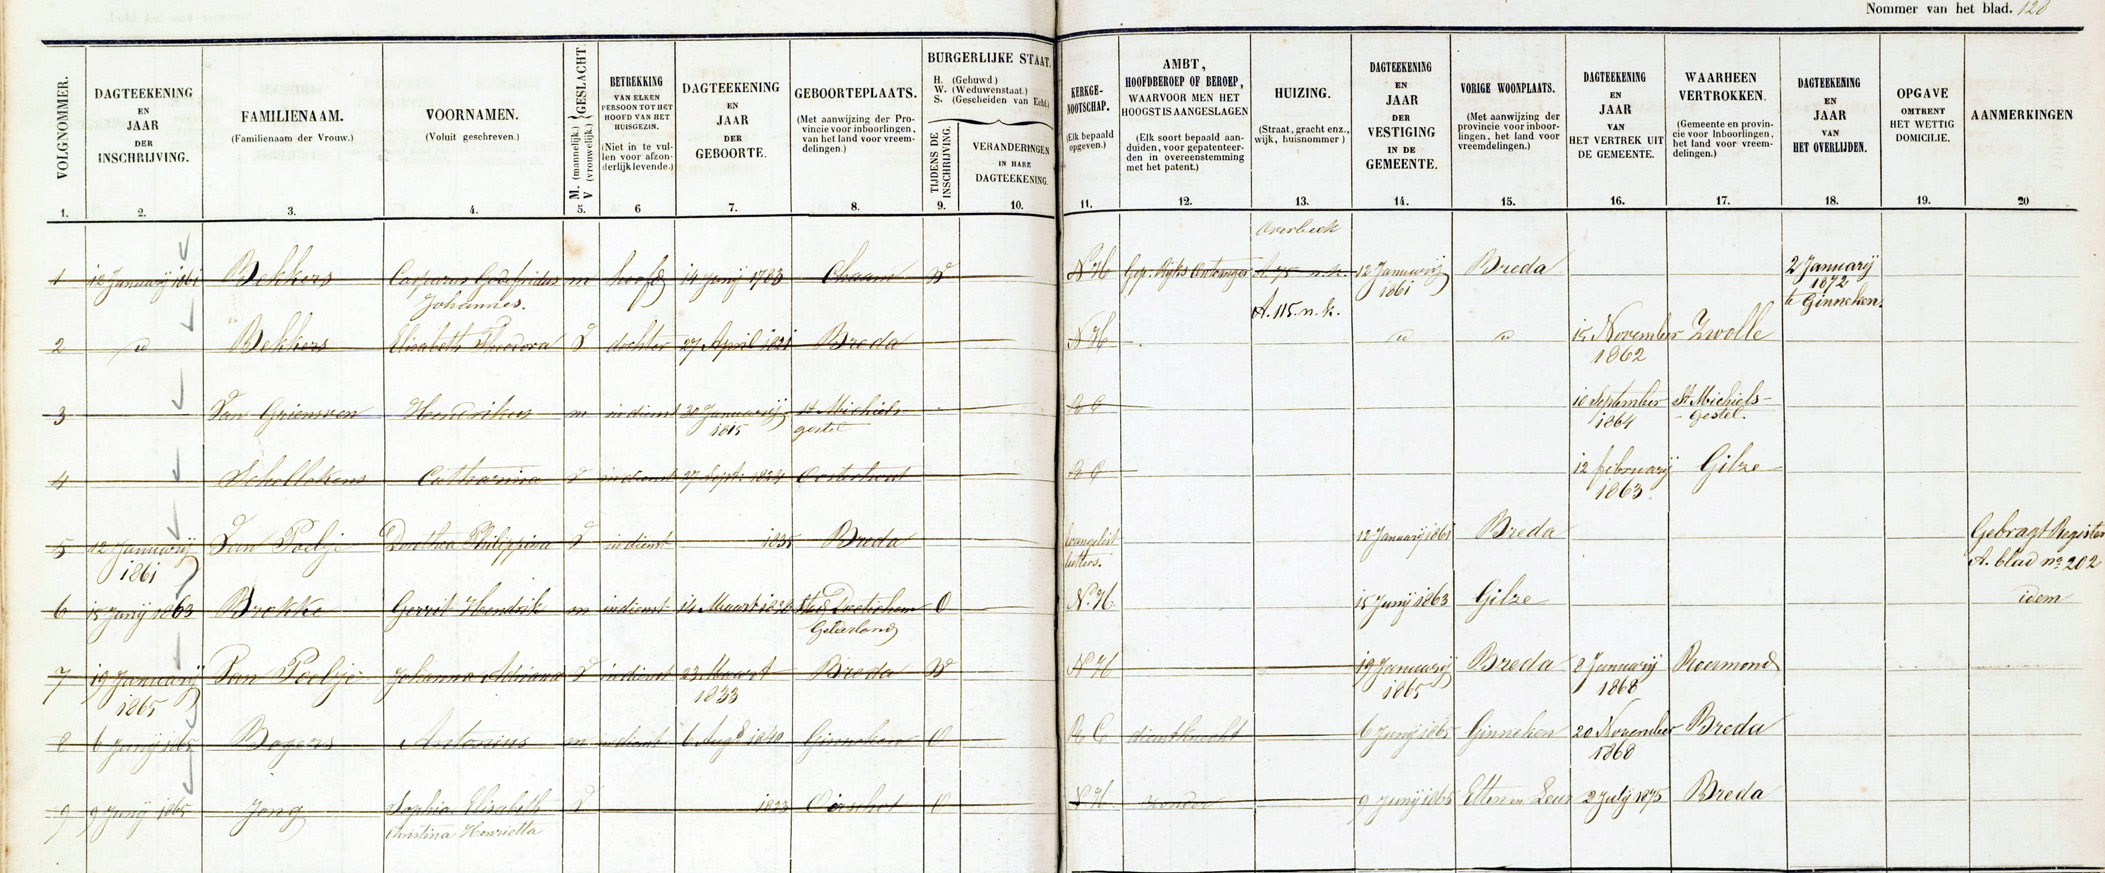 Nommer van het blad. 128
VOLGNOMMER.
1.
DAGTEEKENING
EN
JAAR
DER
INSCHRIJVING.
2.
FAMILIENAAM.
(Familienaam der Vrouw.)
3.
VOORNAMEN.
(Voluit geschreven.)
4.
M. (mannelijk.)
V (vrouwelijk.)
GESLACHT.
5.
BETREKKING
VAN ELKEN
PERSOON TOT HET
HOOFD VAN HET
HUISGEZIN.
(Niet in te vul-
len voor afzon-
derlijk levende.)
6
DAGTEEKENING
EN
JAAR
DER
GEBOORTE.
7.
GEBOORTEPLAATS.
(Met aanwijzing der Pro-
vincie voor inboorlingen,
van het land voor vreem-
delingen.)
8.
BURGERLIJKE STAAT.
H. (Gehuwd)
W. (Weduwenstaat.)
S. (Gescheiden van Echt.)
TIJDENS DE
INSCHRIJVING.
9.
VERANDERINGEN
IN HARE
DAGTEEKENING.
10.
KERKGE-
NOOTSCHAP.
(Elk bepaald
opgeven.)
11.
AMBT,
HOOFDBEROEP OF BEROEP,
WAARVOOR MEN HET
HOOGST IS AANGESLAGEN
(Elk soort bepaald aan-
duiden, voor gepatenteer-
den in overeenstemming
met het patent.)
12.
HUIZING.
(Straat, gracht enz.,
wijk, huisnommer)
13.
DAGTEEKENING
EN
JAAR
DER
VESTIGING
IN DE
GEMEENTE.
14.
VORIGE WOONPLAATS.
(Met aanwijzing der
provincie voor inboor-
lingen, het land voor
vreemdelingen.)
15.
DAGTEEKENING
EN
JAAR
VAN
HET VERTREK UIT
DE GEMEENTE.
16.
WAARHEEN
VERTROKKEN.
(Gemeente en provin-
cie voor Inboorlingen,
het land voor vreem-
delingen.)
17.
DAGTEEKENING
EN
JAAR
VAN
HET OVERLIJDEN.
18.
OPGAVE
OMTRENT
HET WETTIG
DOMICILIE.
19.
AANMERKINGEN
20
Overbeek
1 12 Januarij 1861 Bekkers Casparus Godefridus m hoofd 14 Junij 1783 Chaam W N H Gep. Rijks Ontvanger A. 75 n.k. 12 Januarij Breda 2 Januarij
Johannes. 1861 1872
A. 115. n. k. te Ginneken.
2 id Bekkers Elisabeth Theodora V dochter 27 April 1821 Breda N H id id 15 November Zwolle
1862
3 Van Griensven Hendrikus m in dienst 30 Januarij St Michiels R C 10 September St Michiels-
1815 gestel 1864 Gestel.
4 Schellekens Catharina V in dienst 27 Sept. 1824 Oosterhout R C 12 februarij Gilze
1863.
5 12 Januarij Van Poelje Dorthea Philippina V in dienst 1835 Breda Evangelist 12 Januarij 1861 Breda Gebragt Register
1861 luthers. A. blad no 202
6 15 Junij 1863 Brokke Gerrit Hendrik m in dienst 14 Maart 1828 Doetichem O N. H. 15 Junij 1863 Gilze idem
Gelderland
7 19 Januarij Van Poelje Johanna Adriana V in dienst 23 Maart Breda W N H 19 Januarij Breda 8 Januarij Roermond
1865 1833 1865 1868
8 6 Junij 1865 Bogers Antonius m in dienst 6 Augt 1840 Ginneken O R C dienstknecht 6 Junij 1865 Ginneken 20 November Breda
1868
9 9 Junij 1865 Jong Sophia Elisabeth V 1823 Oirschot O N. H. zonder 9 Junij 1865 Etten en Leur 2 Julij 1875 Breda
Christina Henrietta